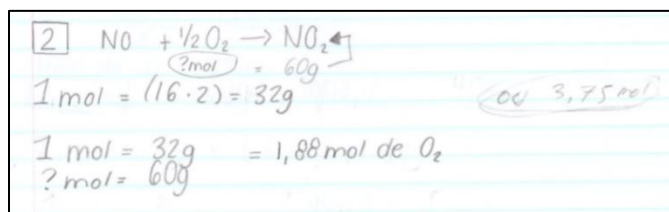 2 NO + ½O₂ → NO₂
?mol = 60g
1 mol = (16·2) = 32g
ou 3,75 mol
1 mol = 32g = 1,88 mol de O₂
? mol = 60g